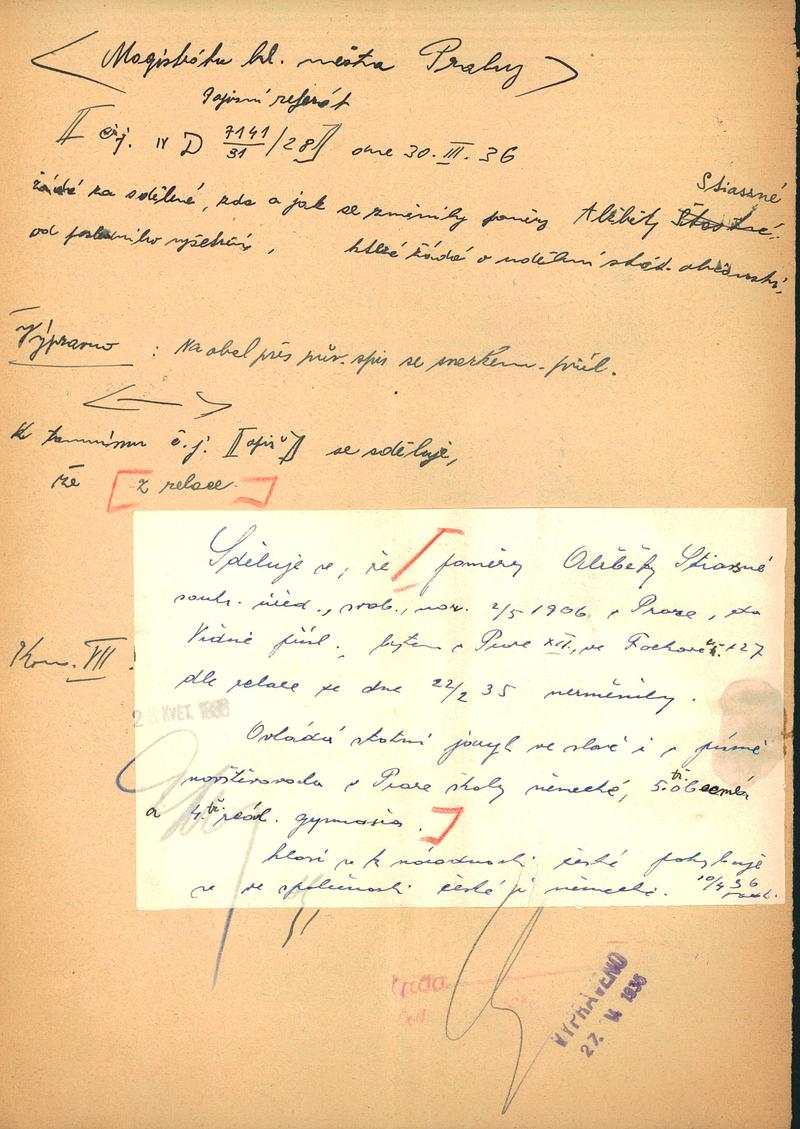 Magistrátu hl. města Prahy
Popisní referát
čj. IV D 7141/31 /28 dne 30. III. 36
Stiassné
žádá za sdělení, zda a jak se změnily poměry Alžběty
od posledního vyšetření, která žádá o udělení stát. občanství.
Výpravno : Na obal přís. pův. spis se
K tamnímu č. j. opiš se sděluje,
že z relace
Sděluje se, že poměry Alžběty Stiassné
soukr. úřed., svob., nar. 2/5 1906 v Praze, do
Vídně přísl., bytem v Praze XII., ve Fochově č. 127
dle relace ze dne 22/2 35 nezměnily.
Kom. VII
KVET. 1936
Ovládá státní jazyk ve slově i v písmě
navštěvovala v Praze školy německé, 5 tř. obecné
a 4 tř. reál. gymnasia.
hlásí se k národnosti české pohybuje
se ve společnosti české i německé. 10/4 36
VYPRAVENO
27. 1936